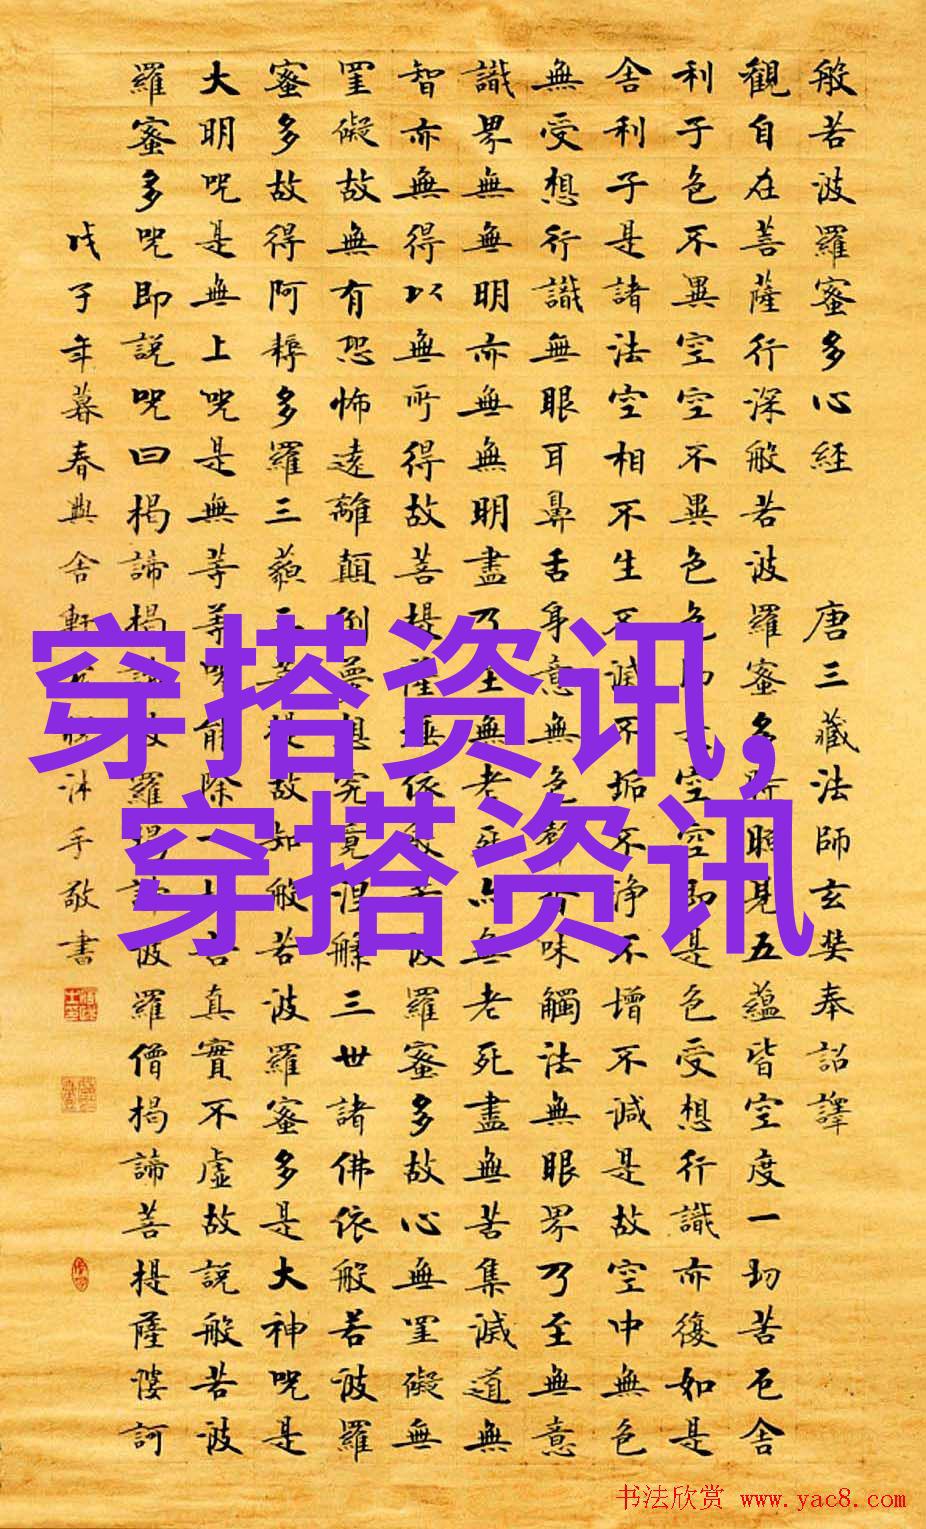 般若波羅蜜多心経 唐三藏法師玄奘奉詔譯
觀自在菩薩行深般若波羅蜜多時照見五蘊皆空度一切苦厄舍
利子色不異空空不異色色即是空空即是色受想行識亦復如是
舍利子是諸法空相不生不滅不垢不淨不增不減是故空中無色
無受想行識無眼耳鼻舌身意無色聲香味觸法無眼界乃至無意
識界無無明亦無無明盡乃至無老死亦無老死盡無苦集滅道無
智亦無得以無所得故菩提薩埵依般若波羅蜜多故心無罣礙無
罣礙故無有恐怖遠離顛倒夢想究竟涅槃三世諸佛依般若波羅
蜜多故得阿耨多羅三藐三菩提故知般若波羅蜜多是大神咒是
大明咒是無上咒是無等等咒能除一切苦真實不虛故說般若波
羅蜜多咒即說咒曰揭諦揭諦波羅揭諦波羅僧揭諦菩提薩婆訶
戊子年暮春興舍軒沐手敬書
穿搭资讯,
穿搭资讯
书法欣赏 www.yac8.com